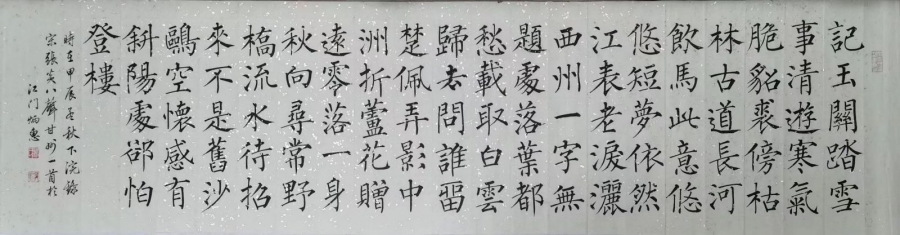 記玉關踏雪
事清遊寒氣
脆貂裘傍枯
林古道長河
飲馬此意悠
悠短夢依然
江表老淚灑
西州一字無
題處落葉都
愁載取白雲
歸去問誰畱
楚佩弄影中
洲折蘆花贈
遠零落一身
秋向尋常野
橋流水待招
來不是舊沙
鷗空懷感有
斜陽處郤怕
登樓
時甲辰秋下浣錄
宋張炎八聲甘州一首於
江门炳惠